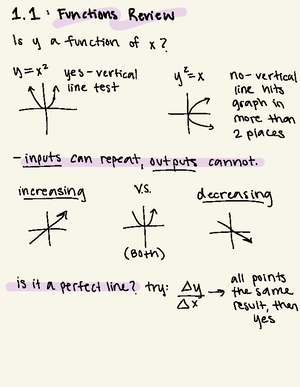 1.1: Functions Review
Is y a function of x?
y=x² yes-vertical line test
y²=x no-vertical line hits graph in more than 2 places
-inputs can repeat, outputs cannot.
increasing v.s. decreasing
(Both)
is it a perfect line? try: Δy/Δx → all points the same result, then yes